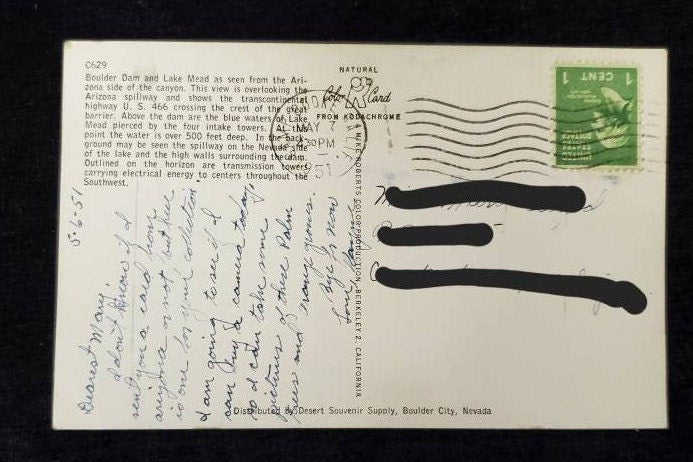 C629
Boulder Dam and Lake Mead as seen from the Ari-
zona side of the canyon. This view is overlooking the
Arizona spillway and shows the transcontinental
highway U. S. 466 crossing the crest of the great
barrier. Above the dam are the blue waters of Lake
Mead pierced by the four intake towers. At this
point the water is over 500 feet deep. In the back-
ground may be seen the spillway on the Nevada side
of the lake and the high walls surrounding the dam.
Outlined on the horizon are transmission towers
carrying electrical energy to centers throughout the
Southwest.
NATURAL
Color Card
FROM KODACHROME
MAY 7
30PM
1951
1 CENT 1
UNITED STATES
POSTAGE
5-6-51
Dearest Mary:
I don't know if I
sent you a card from
arizona or not but here
is one for your collection.
I am going to see if I
can buy a camera today,
so I can take some
pictures of these Palm
trees and orange groves.
Bye for now
Love
MIKE ROBERTS COLOR PRODUCTION, BERKELEY 2, CALIFORNIA
Distributed By Desert Souvenir Supply, Boulder City, Nevada